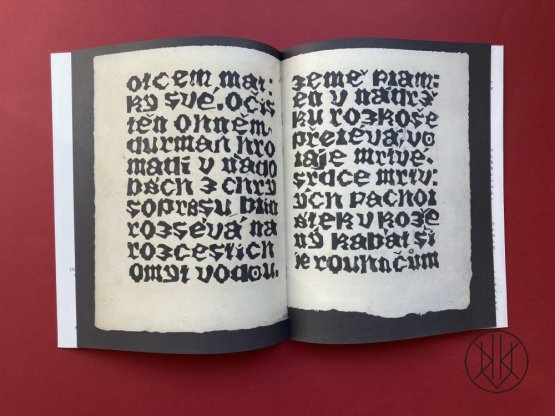 otcem mat:
ky své. Očiš
těn ohněm,
durman hro
madí v nádo
bách z chrý
soprasu. Blín
rozsévá na
rozcestích
omyt vodou.
zemé plam:
en v nádrž
ku rozkoše
přelévá, vo
laje mrtvé.
srdce mrtv:
ých pachol
átek v kože
ný kabát ši
je rouhačům